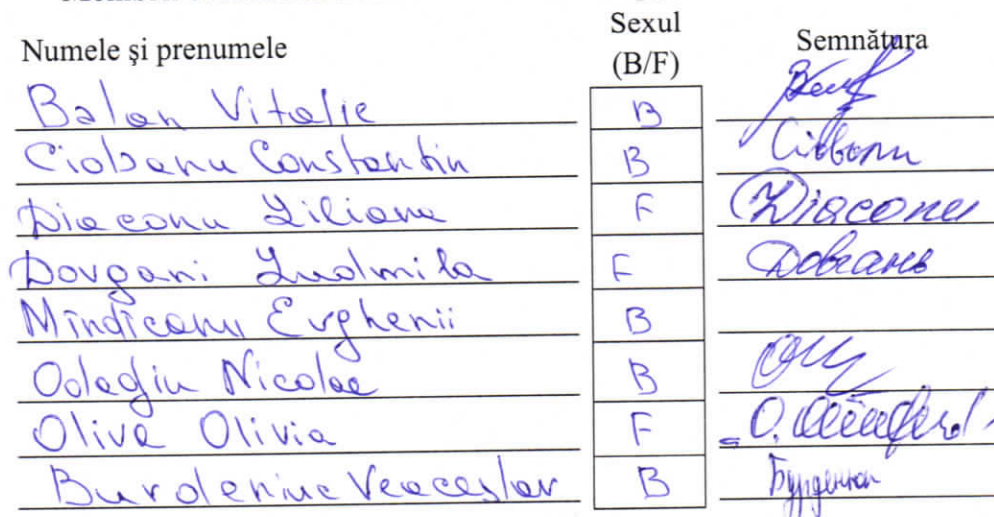 Sexul
Numele și prenumele (B/F) Semnătura
Balan Vitalie B
Ciobanu Constantin B
Diaconu Liliana F Diaconu
Dovgani Ludmila F Довгань
Mîndîcanu Evghenii B
Odagiu Nicolae B
Oliva Olivia F
Burdeniuc Veaceslav B Бурденюк